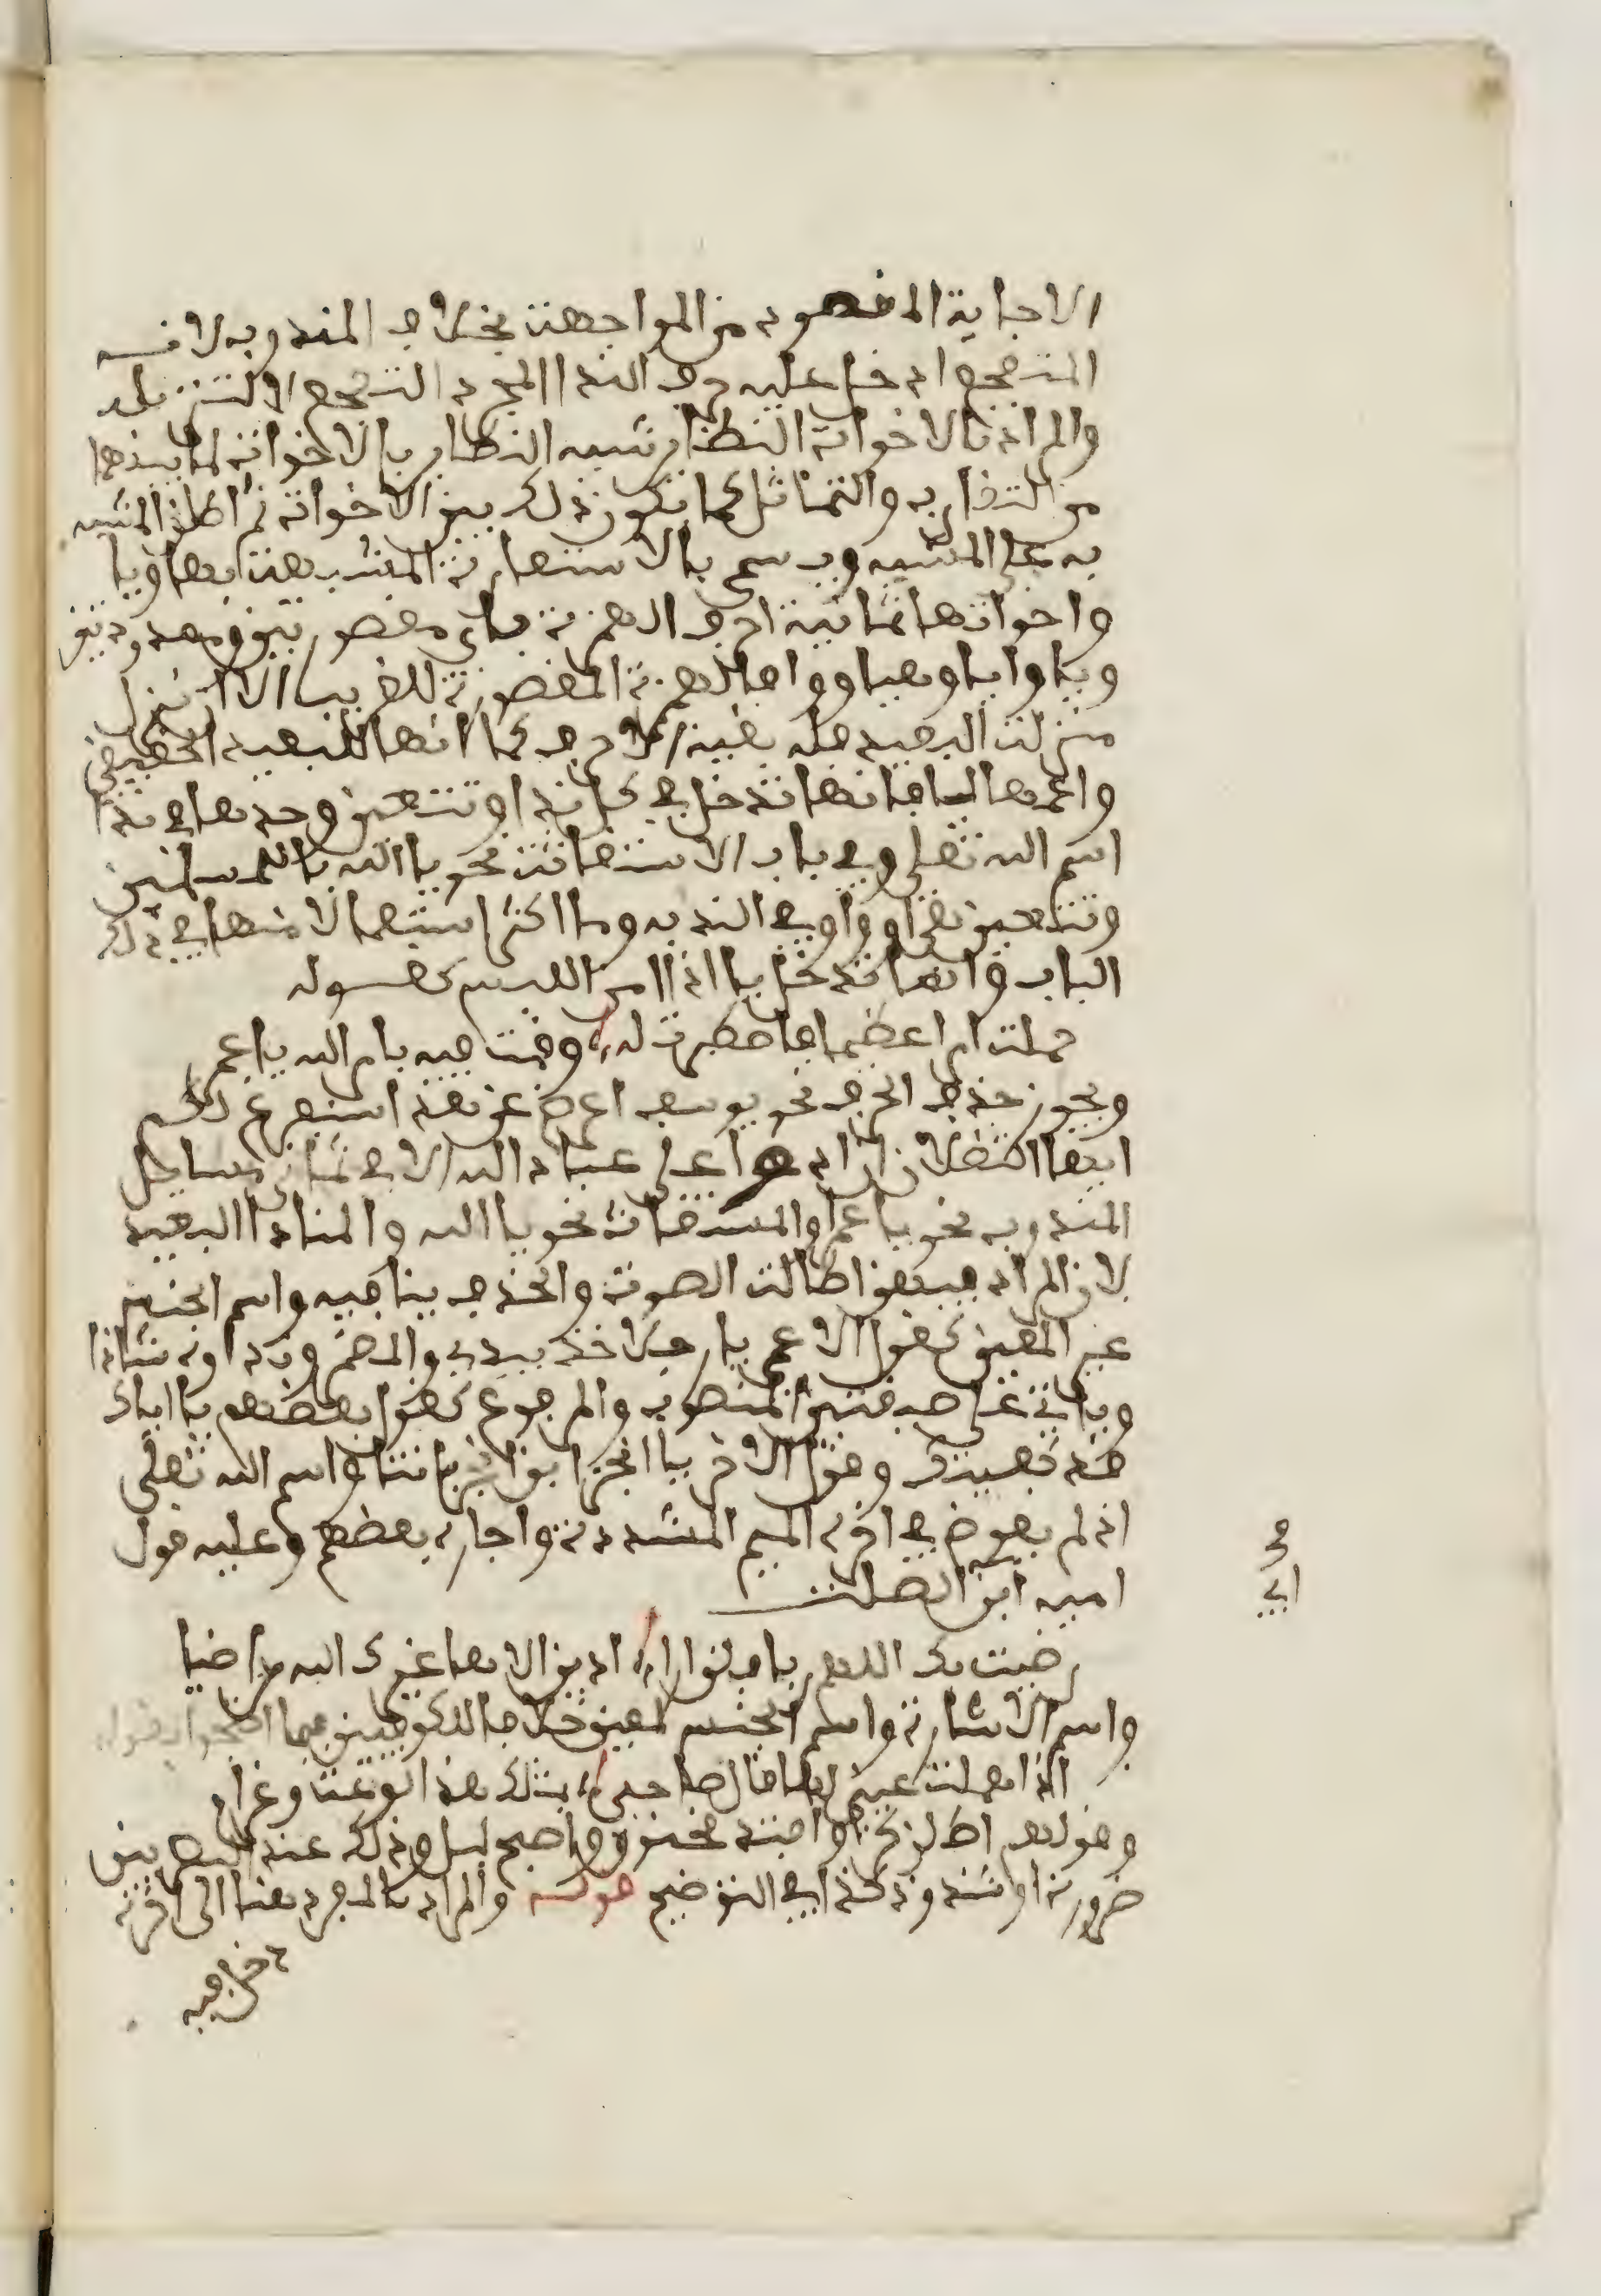 الاجابة المقصود من المواجهة بخلاف المندوب لانه
المتفجع ادخل عليه حرف الندا لمجرد التفجع لا لتنزيله
والمراد بالاخوات النظاير شبه النظاير بالاخوات لما بينها
من التقارب والتماثل كما يكون ذلك بين الاخوات ثم اطلق المشبه
به على المشبه ويسمى بالاستعارة
واخواتها ثمانية احرف الهمزة واي مقصورتين وممدودتين
ويا وايا وهيا ووا فالهمزة المقصورة للقريب الا ان ينزل
منزلة البعيد فله بقية الاحرف كما انها للبعيد الحقيقي
واعمها يا فانها تدخل في كل ندا وتتعين وحدها في ندا
اسم الله تعلى وفي باب الاستغاثة نحو يا الله يا للمسلمين
وتتعين هي او وا في الندبه ووا اكثر استعمالا منها في ذلك
الباب وانما تدخل يا اذا امن اللبس كقوله
حملت امرا عظيما فاصطبرت له وقمت فيه بامر الله يا عمر
ويجوز حذف الحرف نحو يوسف اعرض عن هذا سنفرغ لكم
ايها الثقلان ان ادوا الي عباد الله الا في ثمان مسايل
المندوب نحو يا عمرا والمستغاث نحو يا الله والمنادا البعيد
لان المراد فيهن اطالة الصوت والحذف ينافيه واسم الجنس
غير المعين كقول الاعمى يا رجلا خذ بيدي والمضمر ونداوه شاذا
وياتي على صيغتي المنصوب والمرفوع كقول بعضهم يا اياك
قد كفيتك وقول الاخر يا ابجر ابن ابجر يا انتا واسم الله تعلى
اذ لم يعوض في اخره الميم المشددة واجازه بعضهم وعليه قول
امية ابن ابي الصلت
رضيت بك اللهم ربا فلن ارا ادين الاها غيرك الله راضيا
واسم الاشارة واسم الجنس لمعين خلافا للكوفيين فيهما احتجوا بقوله
اذا هملت عيني لها قال صاحبي بمثلك هذا لوعة وغرام
وقولهم اطرق كرا وافتد مخنوق واصبح ليل وذلك عند البصريين
ضرورة او شذوذ كذا في التوضيح قوله والمراد بالمفرد هنا الى اخره
دخل فيه